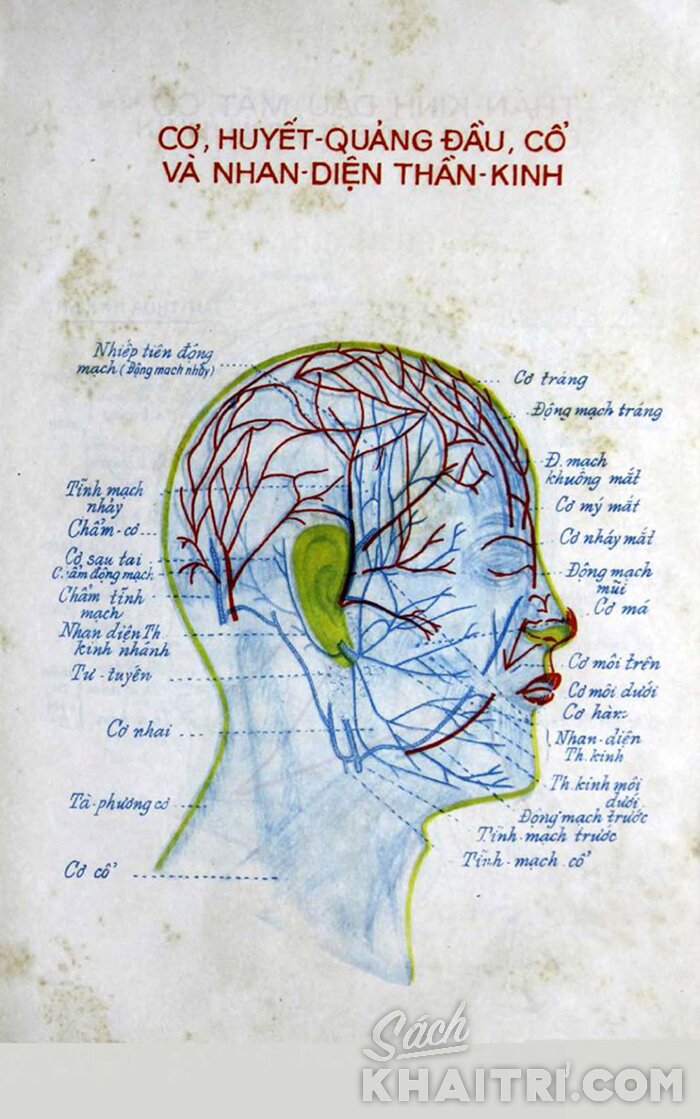 CƠ, HUYẾT-QUẢNG ĐẦU, CỔ
VÀ NHAN-DIỆN THẦN-KINH
Nhiếp tiên động
mạch (Động mạch nhảy)
Tĩnh mạch
nhảy
Chẩm-cơ
Cơ sau tai
Chẩm động mạch
Chẩm tĩnh
mạch
Nhan diện Th.
kinh nhánh
Tư-tuyến
Cơ nhai
Tà-phương cơ
Cơ cổ
Cơ tráng
Động mạch tráng
Đ. mạch
khuông mắt
Cơ mý mắt
Cơ nháy mắt
Động mạch
mũi
Cơ má
Cơ môi trên
Cơ môi dưới
Cơ hàm
Nhan-diện
Th. kinh
Th. kinh môi
dưới
Động mạch trước
Tĩnh-mạch trước
Tĩnh-mạch cổ
Sách
KHAITRÍ.COM